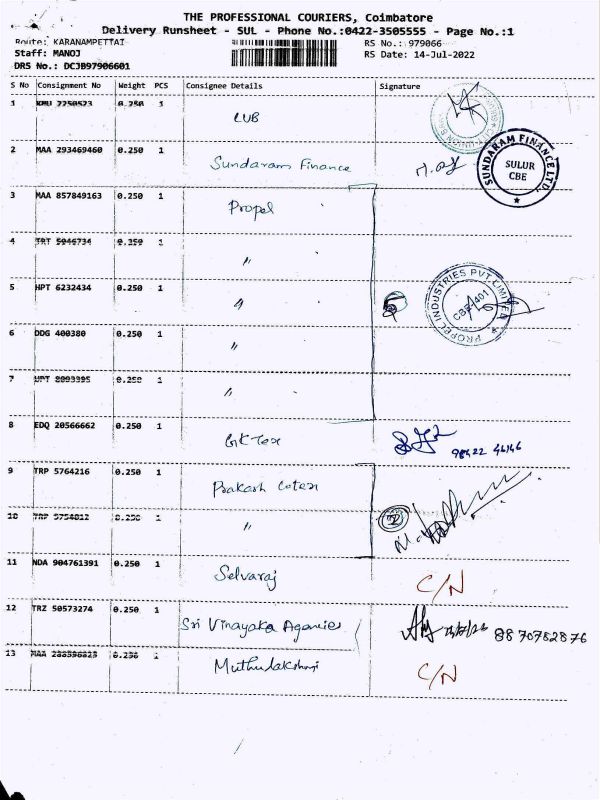 THE PROFESSIONAL COURIERS, Coimbatore
Delivery Runsheet - SUL - Phone No.:0422-3505555 - Page No.:1
Route: KARANAMPETTAI RS No.: 979066
Staff: MANOJ RS Date: 14-Jul-2022
DRS No.: DCJB97906601
S No Consignment No Weight PCS Consignee Details Signature
1 KMU 2250523 0.250 1 CUB
2 MAA 293469460 0.250 1 Sundaram Finance
SUNDARAM FINANCE LTD.
SULUR
CBE
3 MAA 857849163 0.250 1 Propel
4 TRT 5046734 0.250 1 "
5 HPT 6232434 0.250 1 " 5
PROPEL INDUSTRIES PVT LIMITED
CBE-401
6 DDG 400380 0.250 1 "
7 UPT 8093395 0.250 1 "
8 EDQ 20566662 0.250 1 GK Tex
9 TRP 5764216 0.250 1 Prakash Cotex
10 TRP 5754812 0.250 1 " 2
11 NDA 904761391 0.250 1 Selvaraj C/N
12 TRZ 50573274 0.250 1 Sri Vinayaka Agencies 88 70782876
13 MAA 0.250 1 Muthulakshmi C/N